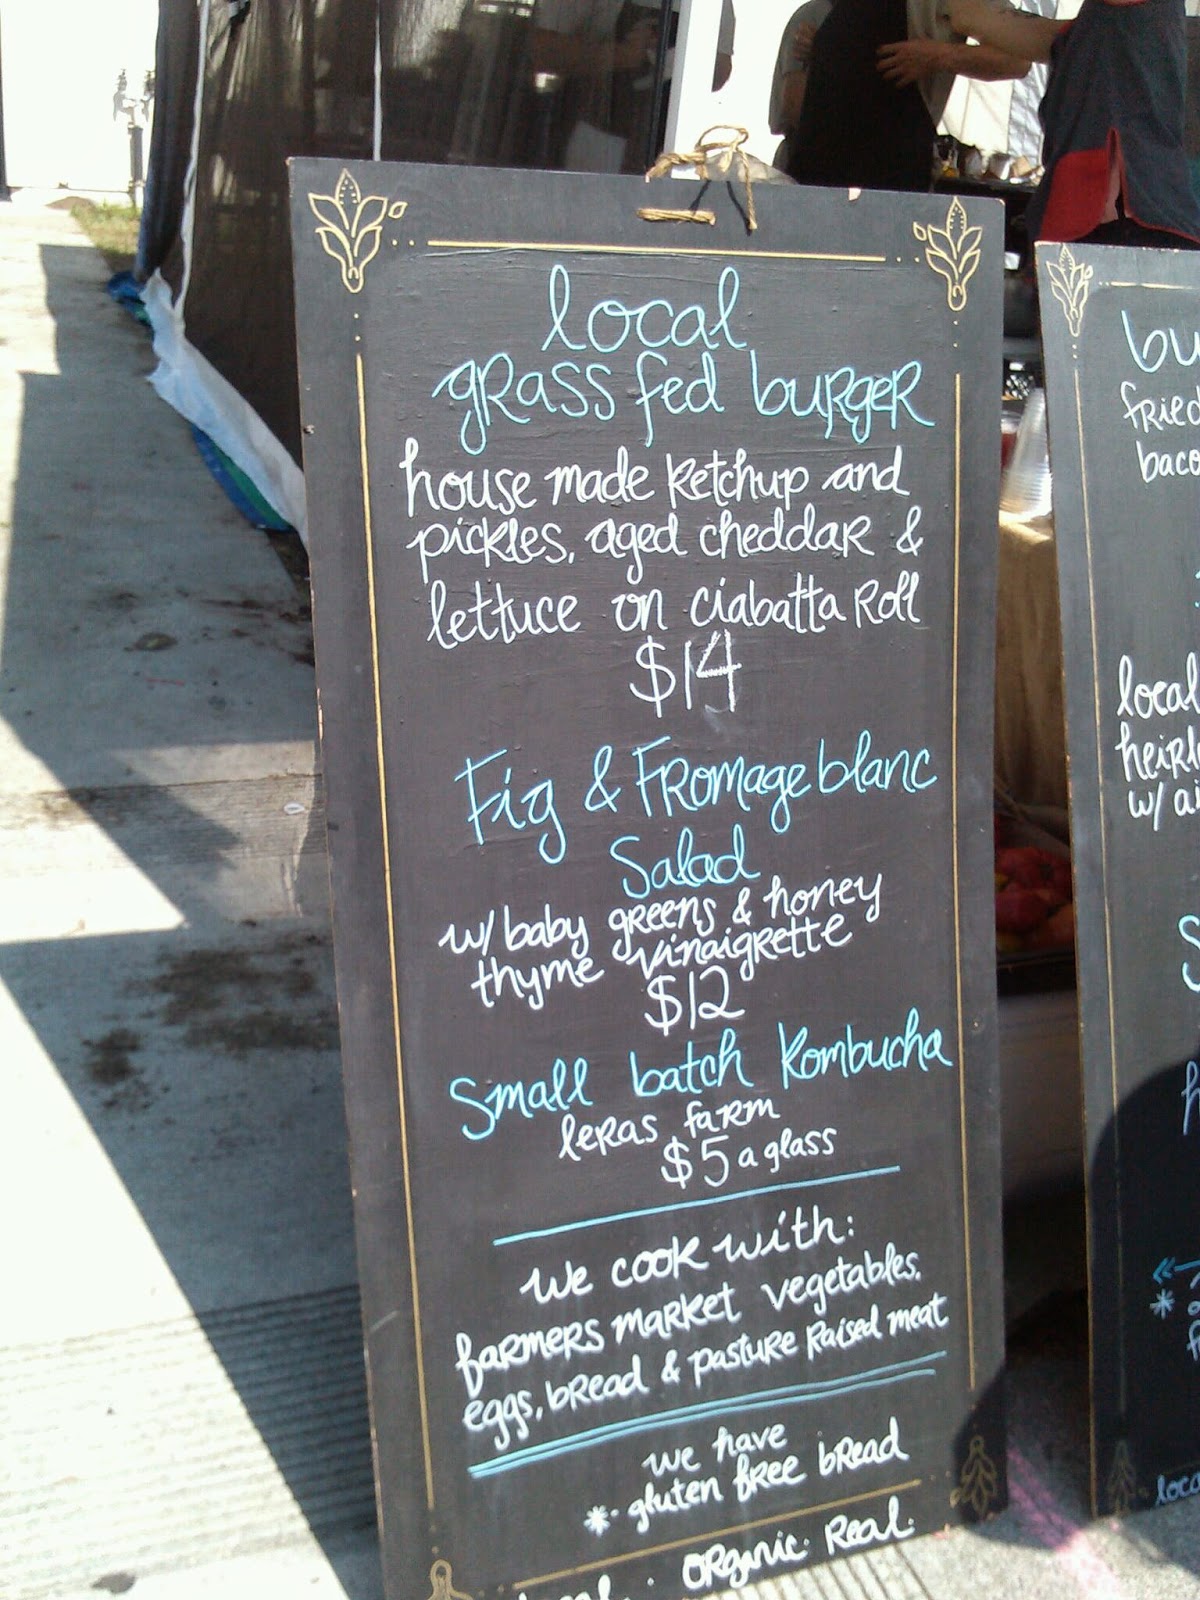 local
grass fed burger
house made ketchup and
pickles, aged cheddar &
lettuce on ciabatta roll
$14
Fig & Fromage blanc
Salad
w/ baby greens & honey
thyme vinaigrette
$12
Small batch Kombucha
leras farm
$5 a glass
we cook with:
farmers market vegetables,
eggs, bread & pasture raised meat
we have
*- gluten free bread
organic. Real.
bu
fried
baco
local
heirl
w/ ai